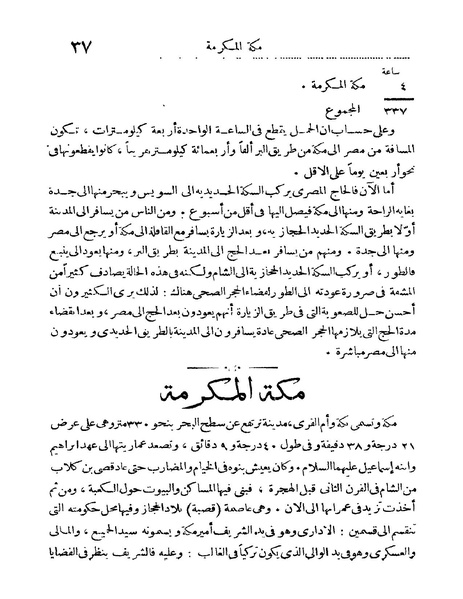 مكة المكرمة ٣٧
ساعة
٤ مكة المكرمة .
٣٣٧ المجموع
وعلى حساب ان الجمل يقطع فى الساعة الواحدة أربعة كيلومترات ، تكون
المسافة من مصر الى مكة من طريق البر ألفاً وأربعمائة كيلومتر تقريباً ، كانوا يقطعونها فى
نحو أربعين يوماً على الاقل .
أما الآن فالحاج المصرى يركب السكة الحديدية الى السويس ويبحر منها الى جدة
بغاية الراحة ومنها الى مكة فيصل اليها فى أقل من أسبوع . ومن الناس من يسافر الى المدينة
أولا بطريق السكة الحديد الحجازية ، وبعد الزيارة يسافر مع القافلة الى مكة أو يرجع الى مصر
ومنها الى جدة . ومنهم من يسافر بعد الحج الى المدينة بطريق البر ، ومنها يعود الى ينبع
فالطور ، أو يركب السكة الحديد الحجازية الى الشام ولكنه فى هذه الحالة يصادف كثيراً من
المشقة فى ضرورة عودته الى الطور لمضاء الحجر الصحى هناك : لذلك يرى الكثيرون أن
أحسن حل للصعوبة التى فى طريق الزيارة أنهم يعودون بعد الحج الى مصر ، وبعد انقضاء
مدة الحج التى يلازمها الحجر الصحى عادة يسافرون الى المدينة بالطريق الحديدى ويعودون
منها الى مصر مباشرة .
مكة المكرمة
مكة وتسمى بكة وأم القرى ، مدينة ترتفع عن سطح البحر بنحو ٣٣٠ متر وهى على عرض
٢١ درجة و ٣٨ دقيقة وفى طول ٤٠ درجة و ٩ دقائق ، وتصعد عماريتها الى عهد ابراهيم
وابنه إسماعيل عليهما السلام . وكان يعيش بنوه فى الخيام والمضارب حتى عاد قصى بن كلاب
من الشام فى القرن الثانى قبل الهجرة ، فبنى فيها المساكن والبيوت حول الكعبة ، ومن ثم
أخذت تزيد فى عمرانها الى الان . وهى عاصمة ( قصبة ) بلاد الحجاز وفيها محل حكومته التى
تنقسم الى قسمين : الادارى وهو فى يد الشريف أمير مكة ويسمونه سيد الجميع ، والمالى
والعسكرى وهو فى يد الوالى الذى يكون تركياً فى الغالب : وعليه فالشريف ينظر فى القضايا